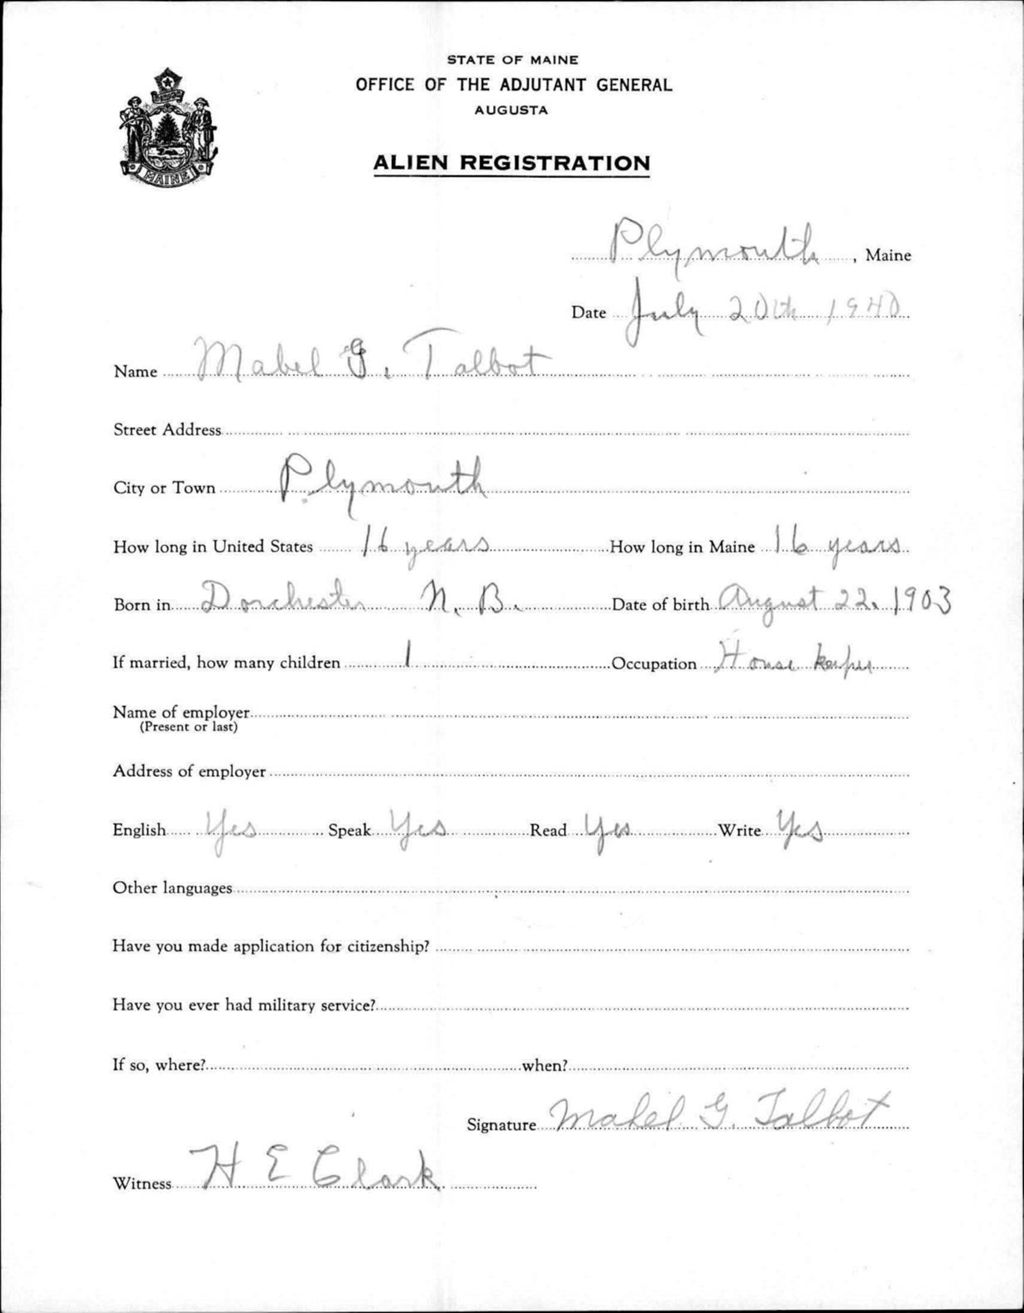 STATE OF MAINE
OFFICE OF THE ADJUTANT GENERAL
AUGUSTA
ALIEN REGISTRATION
MAINE
Plymouth, Maine
Date July 20th 1940
Name Mabel G. Talbot
Street Address
City or Town Plymouth
How long in United States 16 years How long in Maine 16 years
Born in Dorchester N. B. Date of birth August 22, 1903
If married, how many children 1 Occupation House keeper
Name of employer
(Present or last)
Address of employer
English Yes Speak Yes Read Yes Write Yes
Other languages
Have you made application for citizenship?
Have you ever had military service?
If so, where? when?
Signature Mabel G. Talbot
Witness H E Clark